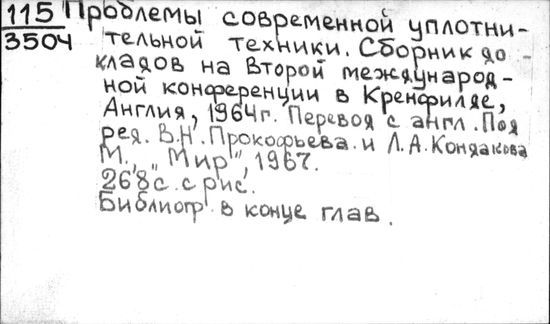 115 Проблемы современной уплотни-
3504 тельной техники. Сборник до-
кладов на Второй международ-
ной конференции в Кренфилде,
Англия, 1964г. Перевод с англ. Под
ред. В.Н. Прокофьева и Л.А. Кондакова
М., "Мир", 1967.
268 с. с рис.
Библиогр в конце глав.